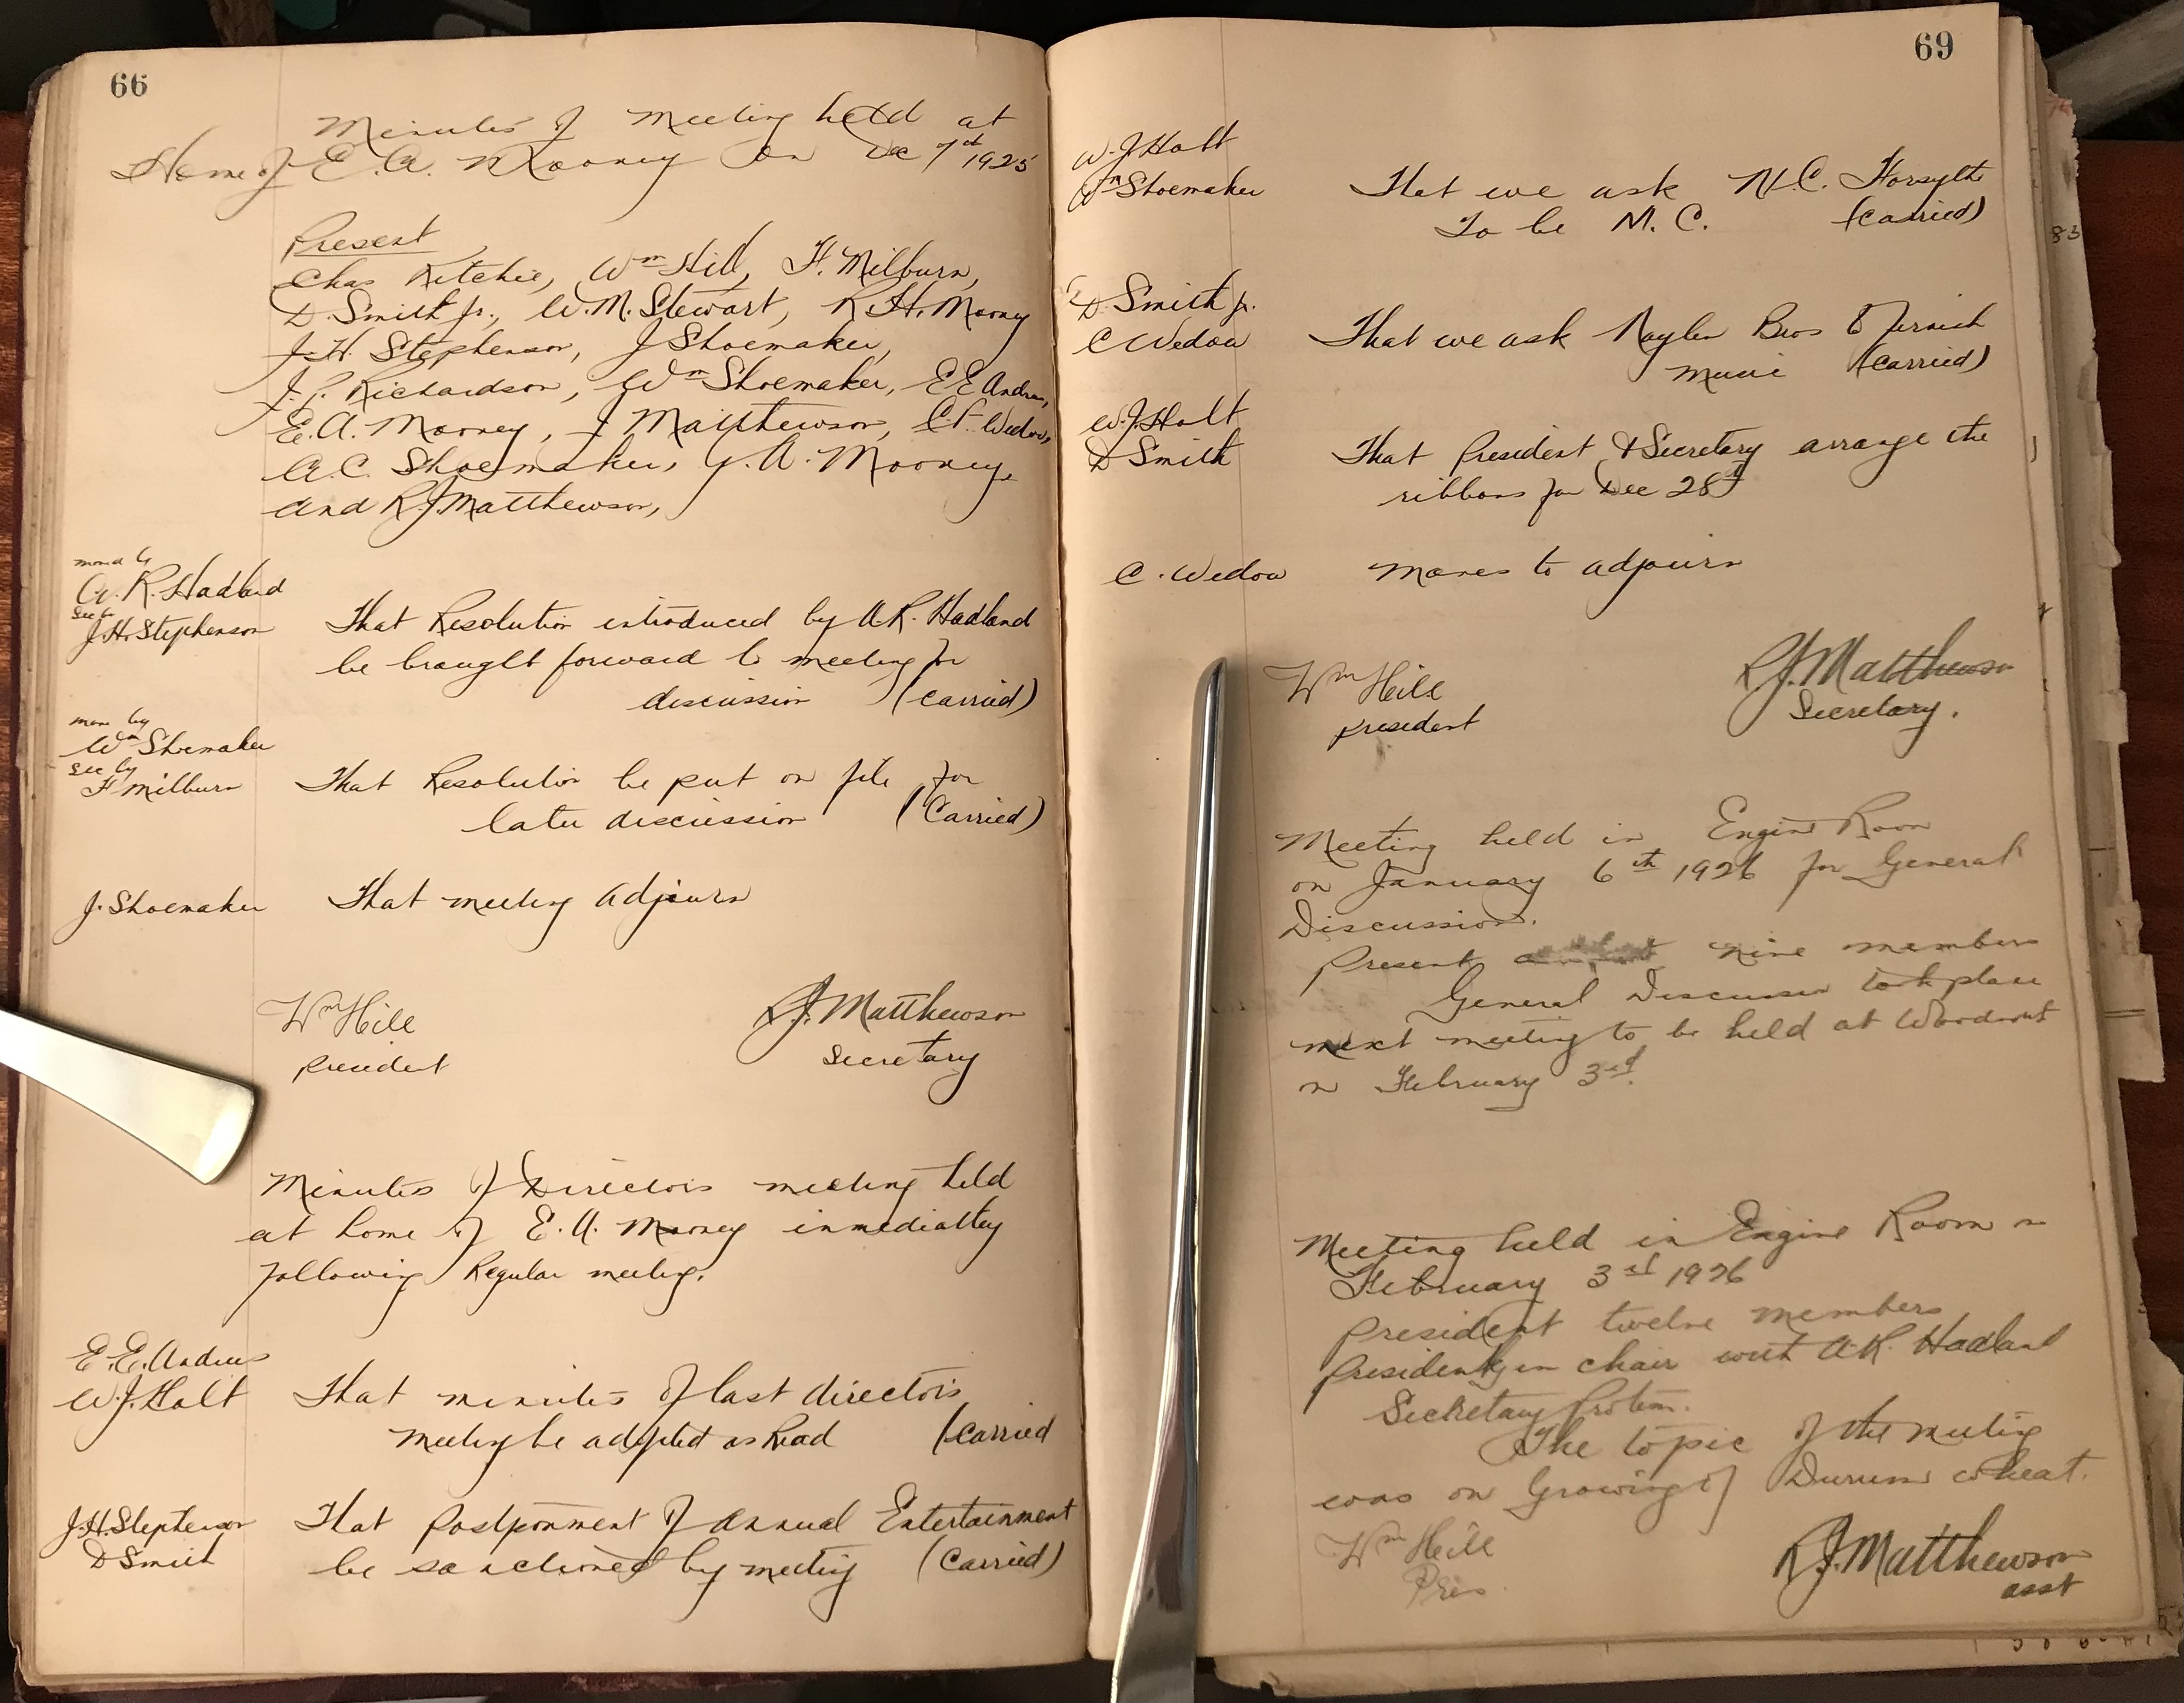 66
Minutes of Meeting held at
Home of E. A. Mooney on Dec 7th 1925
Present
Chas Ritchie, Wm Hill, F. Milburn,
D. Smith Jr., W. M. Stewart, R. H. Mooney
J. H. Stephenson, J Shoemaker,
J. P. Richardson, Wm Shoemaker, E E Andrews,
E. A. Mooney, J Matthewson, C F. Wedow,
A. C. Shoemaker, G. A. Mooney,
and R J Matthewson,
moved by
A. R. Hadland
Sec by
J. H. Stephenson That Resolution introduced by A. R. Hadland
be brought forward to meeting for
discussion (Carried)
move by
Wm Shoemaker
Sec by
F Milburn That Resolution be put on file for
later discussion (Carried)
J. Shoemaker That meeting adjourn
Wm Hill R. J. Matthewson
president Secretary
Minutes of Directors meeting held
at home of E. A. Mooney immediatley
following Regular meeting.
E. E. Andrews
W. J. Halt That minutes of last directors
Meeting be adopted as Read (Carried
J. H. Stephenson That Postponment of Annual Entertainment
D Smith be sanctioned by meeting (Carried)
69
W. J. Halt
Wm Shoemaker That we ask N. C. Forsythe
To be M. C. (Carried)
D. Smith Jr.
C Wedow That we ask Naylor Bros to furnish
music (Carried)
W. J. Halt
D Smith That President & Secretary arrange the
ribbons for Dec 28th
C. Wedow moves to adjourn
Wm Hill R. J. Matthewson
president Secretary.
Meeting held in Engine Room
on January 6th 1926 for General
Discussion.
Present nine members
General Discussion took place
next meeting to be held at
on February 3rd.
Meeting held in Engine Room on
February 3rd 1926
President twelve members
President in chair with A. R. Hadland
Secretary Protem.
The topic of the meeting
was on Growing of Durum wheat.
Wm Hill R. J. Matthewson
Pres. asst